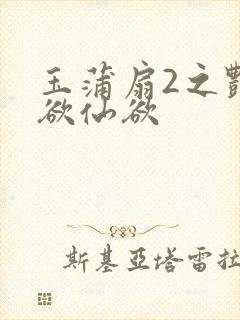 玉蒲扇2之艷
欲仙欲
斯基亞塔雷拉